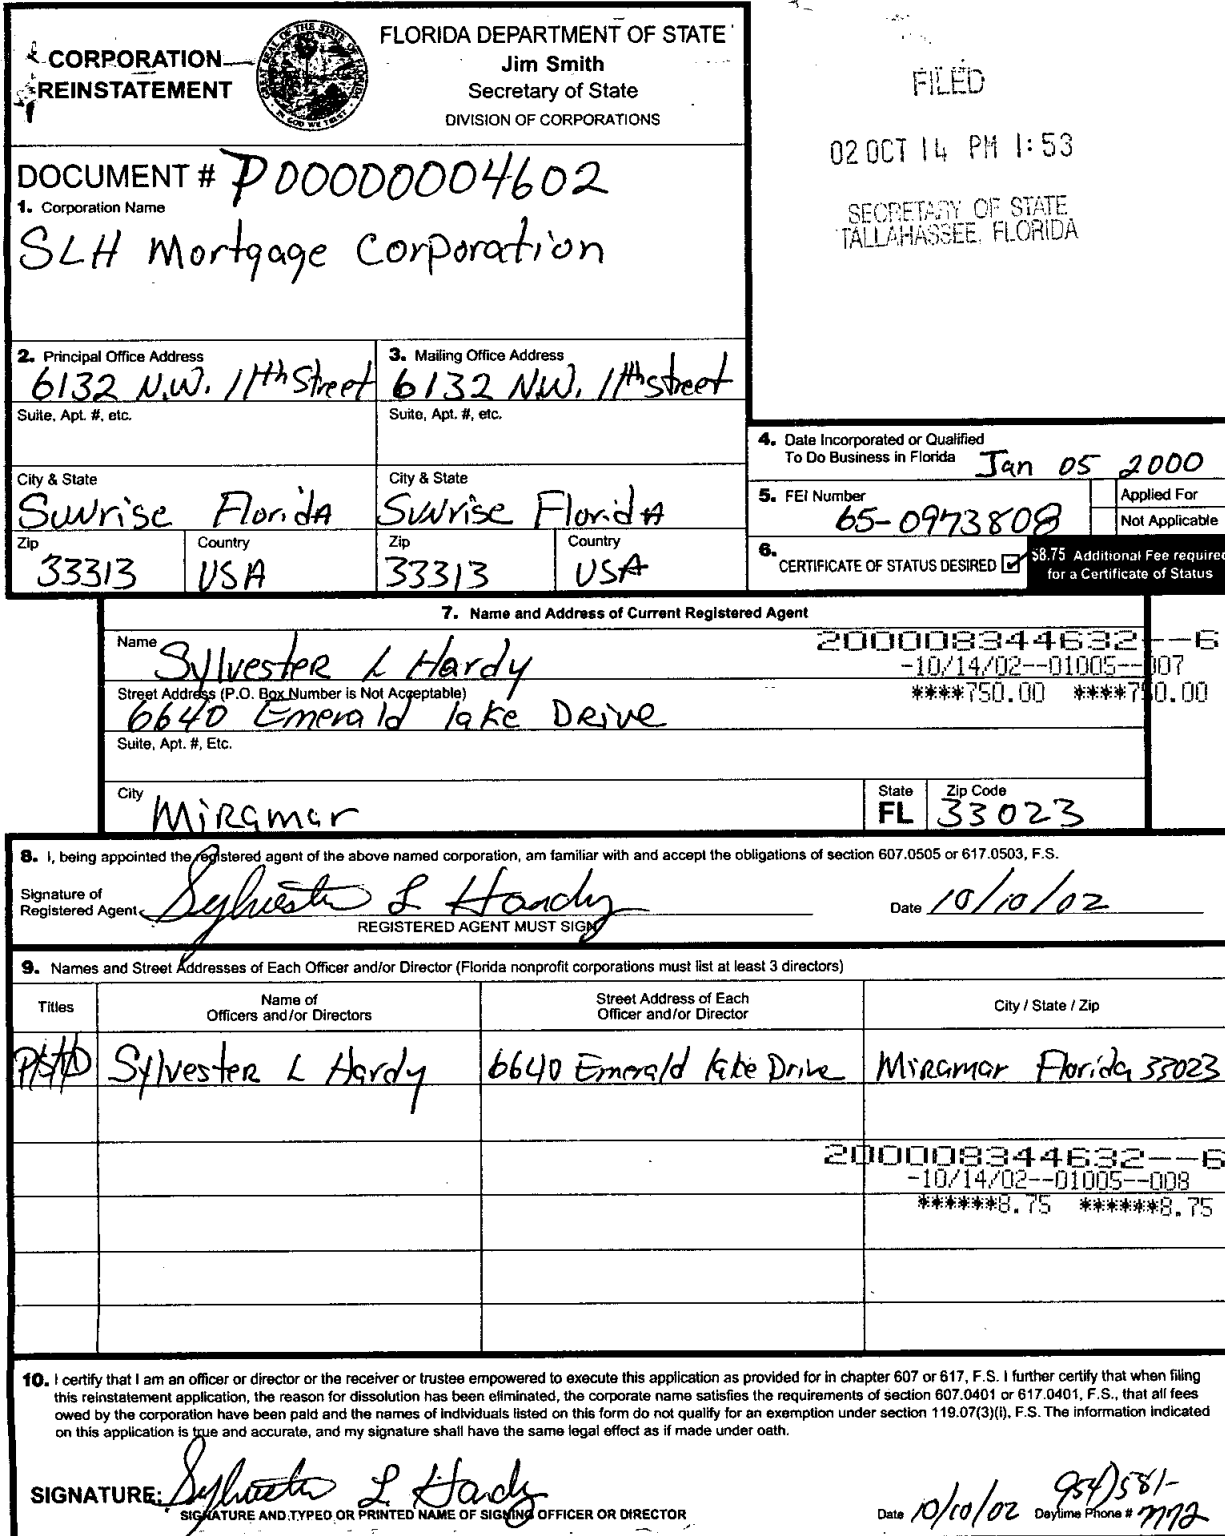 CORPORATION
REINSTATEMENT
FLORIDA DEPARTMENT OF STATE
Jim Smith
Secretary of State
DIVISION OF CORPORATIONS
FILED
02 OCT 14 PM 1:53
SECRETARY OF STATE
TALLAHASSEE, FLORIDA
DOCUMENT # P00000004602
1. Corporation Name
SLH Mortgage Corporation
2. Principal Office Address
6132 N.W. 11th Street
3. Mailing Office Address
6132 N.W. 11th street
Suite, Apt. #, etc.
Suite, Apt. #, etc.
City & State
Sunrise Florida
City & State
Sunrise Florida
Zip
33313
Country
USA
Zip
33313
Country
USA
4. Date Incorporated or Qualified
To Do Business in Florida Jan 05 2000
5. FEI Number
65-0973808
Applied For
Not Applicable
6. CERTIFICATE OF STATUS DESIRED
$8.75 Additional Fee required
for a Certificate of Status
7. Name and Address of Current Registered Agent
Name Sylvester L Hardy
200008344632--6
-10/14/02--01005--007
****750.00 ****750.00
Street Address (P.O. Box Number is Not Acceptable)
6640 Emerald lake Drive
Suite, Apt. #, Etc.
City Miramar
State
FL
Zip Code
33023
8. I, being appointed the registered agent of the above named corporation, am familiar with and accept the obligations of section 607.0505 or 617.0503, F.S.
Signature of
Registered Agent Sylvester L Hardy
Date 10/10/02
REGISTERED AGENT MUST SIGN
9. Names and Street Addresses of Each Officer and/or Director (Florida nonprofit corporations must list at least 3 directors)
Titles
Name of
Officers and/or Directors
Street Address of Each
Officer and/or Director
City / State / Zip
Sylvester L Hardy
6640 Emerald lake Drive
Miramar Florida 33023
200008344632--6
-10/14/02--01005--008
******8.75 ******8.75
10. I certify that I am an officer or director or the receiver or trustee empowered to execute this application as provided for in chapter 607 or 617, F.S. I further certify that when filing
this reinstatement application, the reason for dissolution has been eliminated, the corporate name satisfies the requirements of section 607.0401 or 617.0401, F.S., that all fees
owed by the corporation have been paid and the names of individuals listed on this form do not qualify for an exemption under section 119.07(3)(i), F.S. The information indicated
on this application is true and accurate, and my signature shall have the same legal effect as if made under oath.
SIGNATURE: Sylvester L Hardy
SIGNATURE AND TYPED OR PRINTED NAME OF SIGNING OFFICER OR DIRECTOR
Date 10/10/02
954)581-
Daytime Phone # 7772